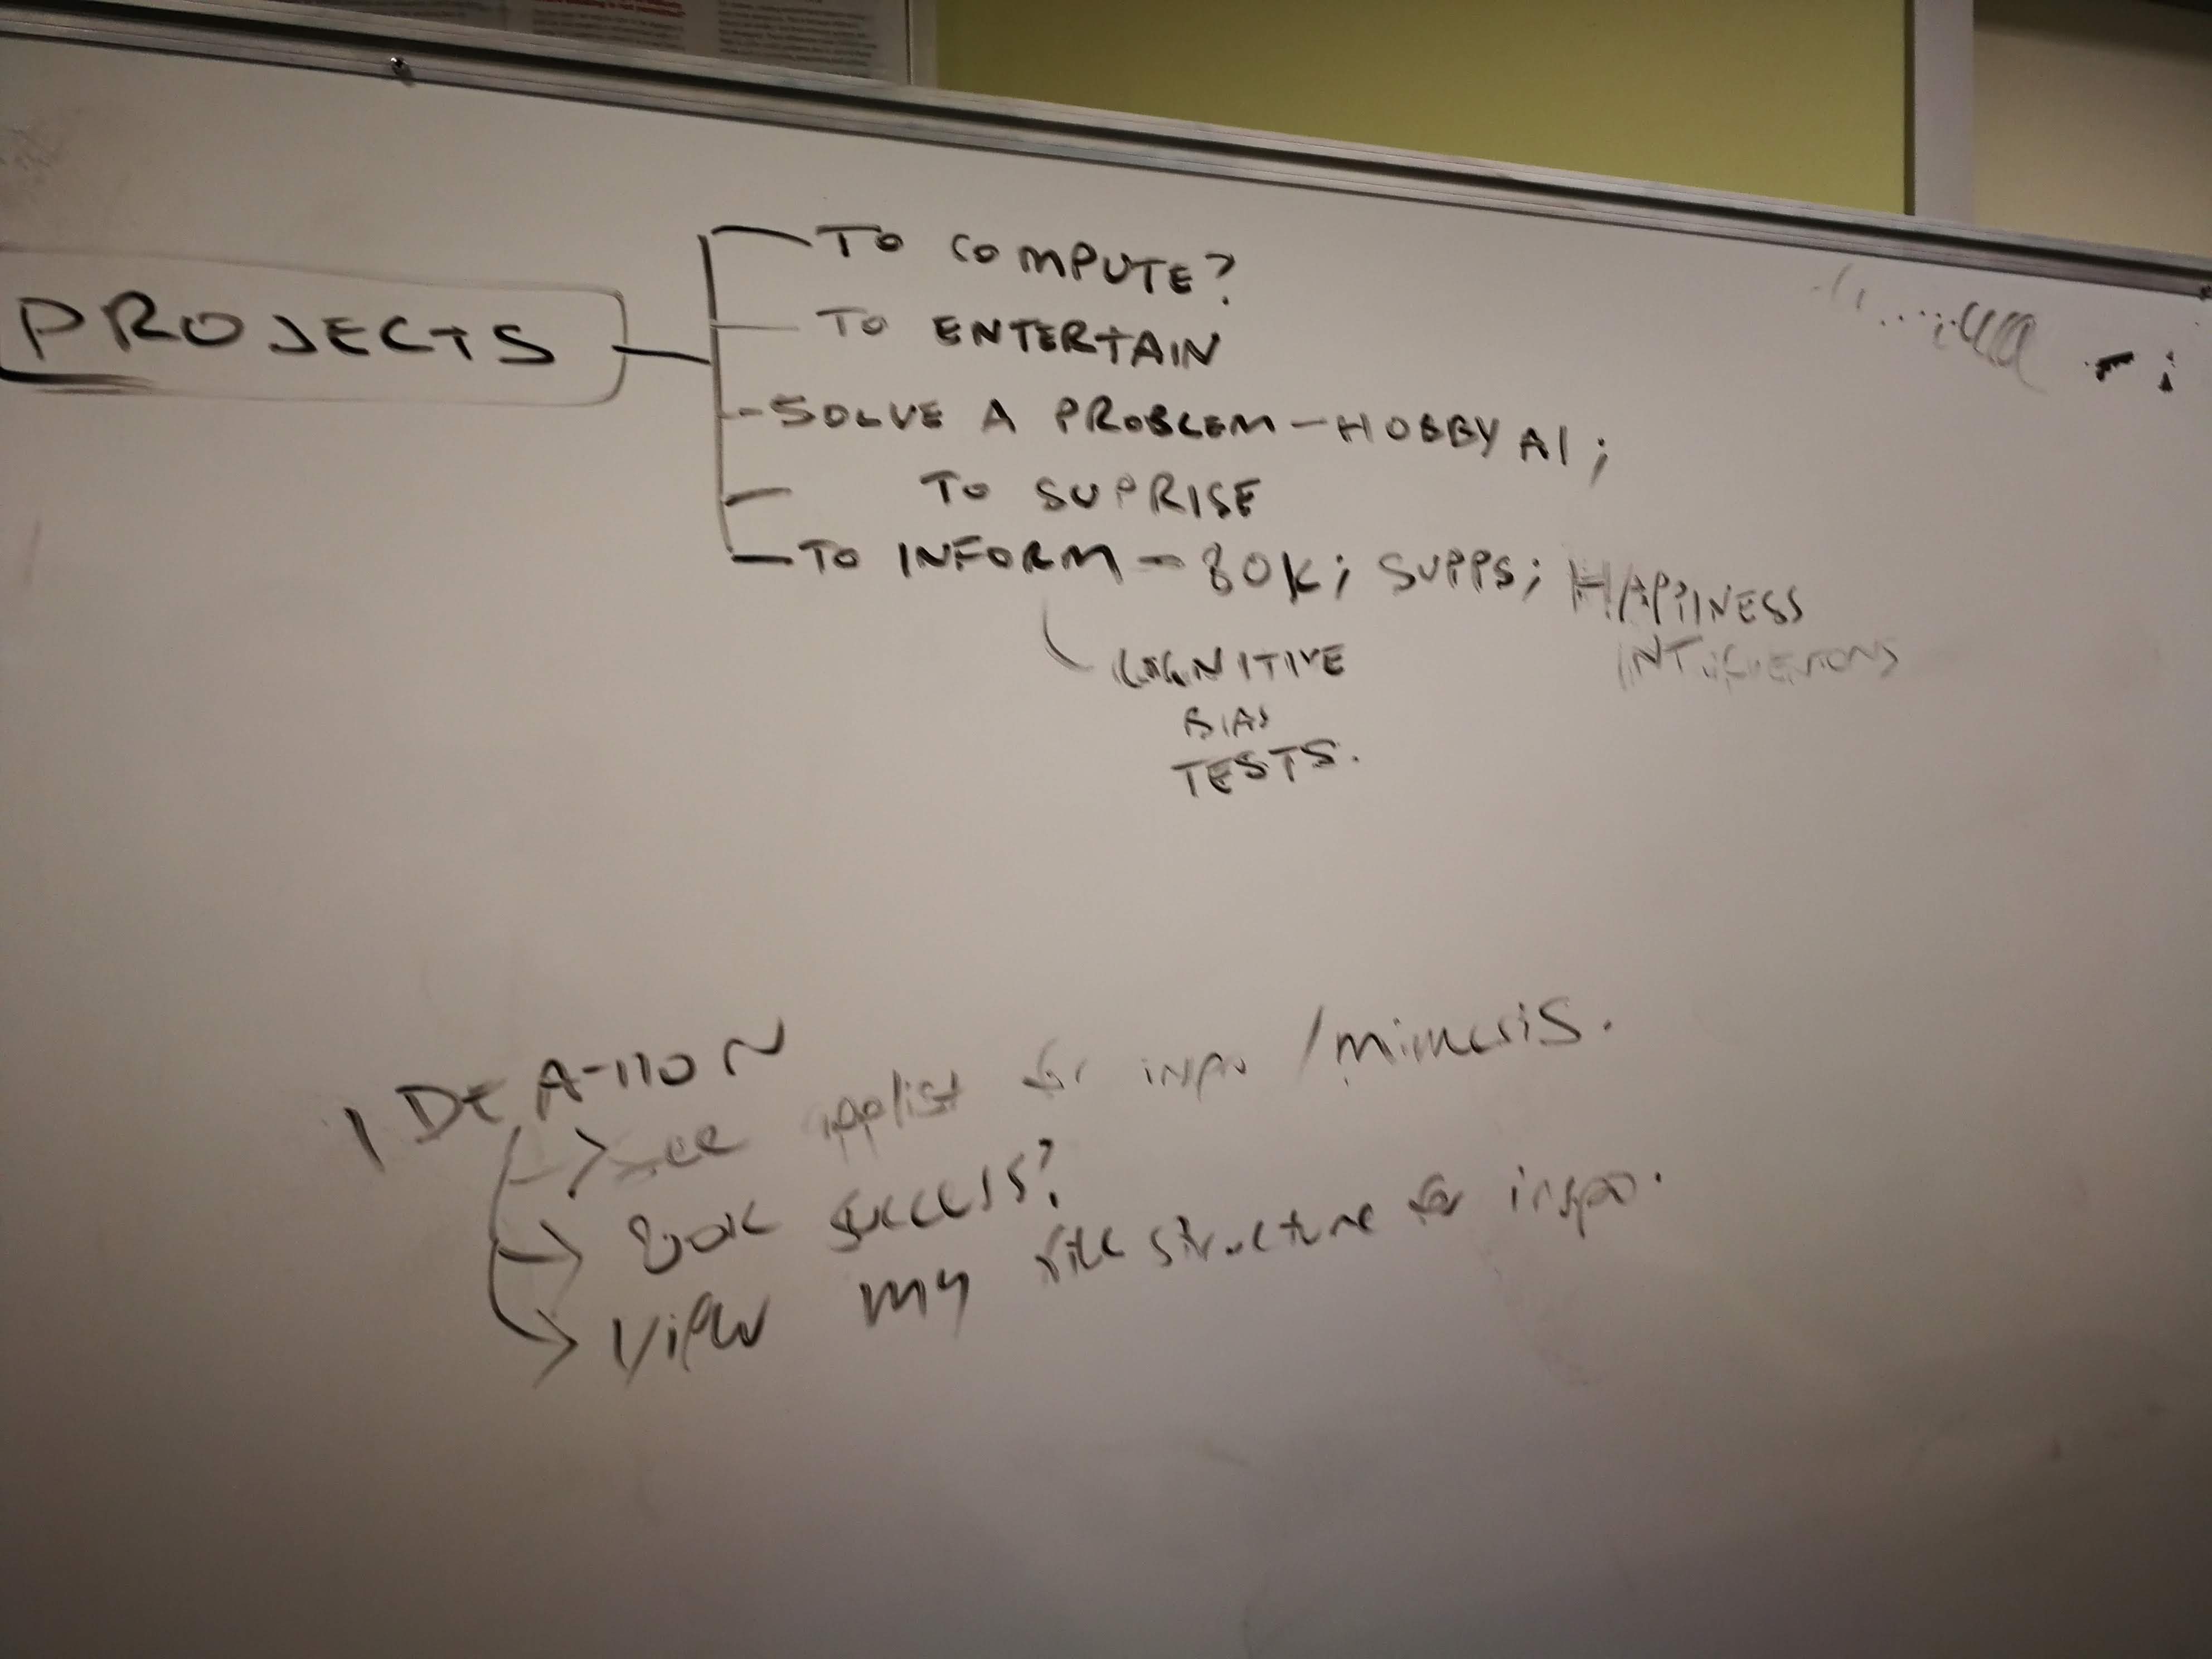 PROJECTS
TO COMPUTE?
TO ENTERTAIN
SOLVE A PROBLEM - HOBBY AI;
TO SUPRISE
TO INFORM - 80K; SUPPS; HAPPINESS
COGNITIVE
BIAS
TESTS.
IDEATION
→ see applist for inspo / mimesis.
→ 80K success?
→ View my file structure for inspo.